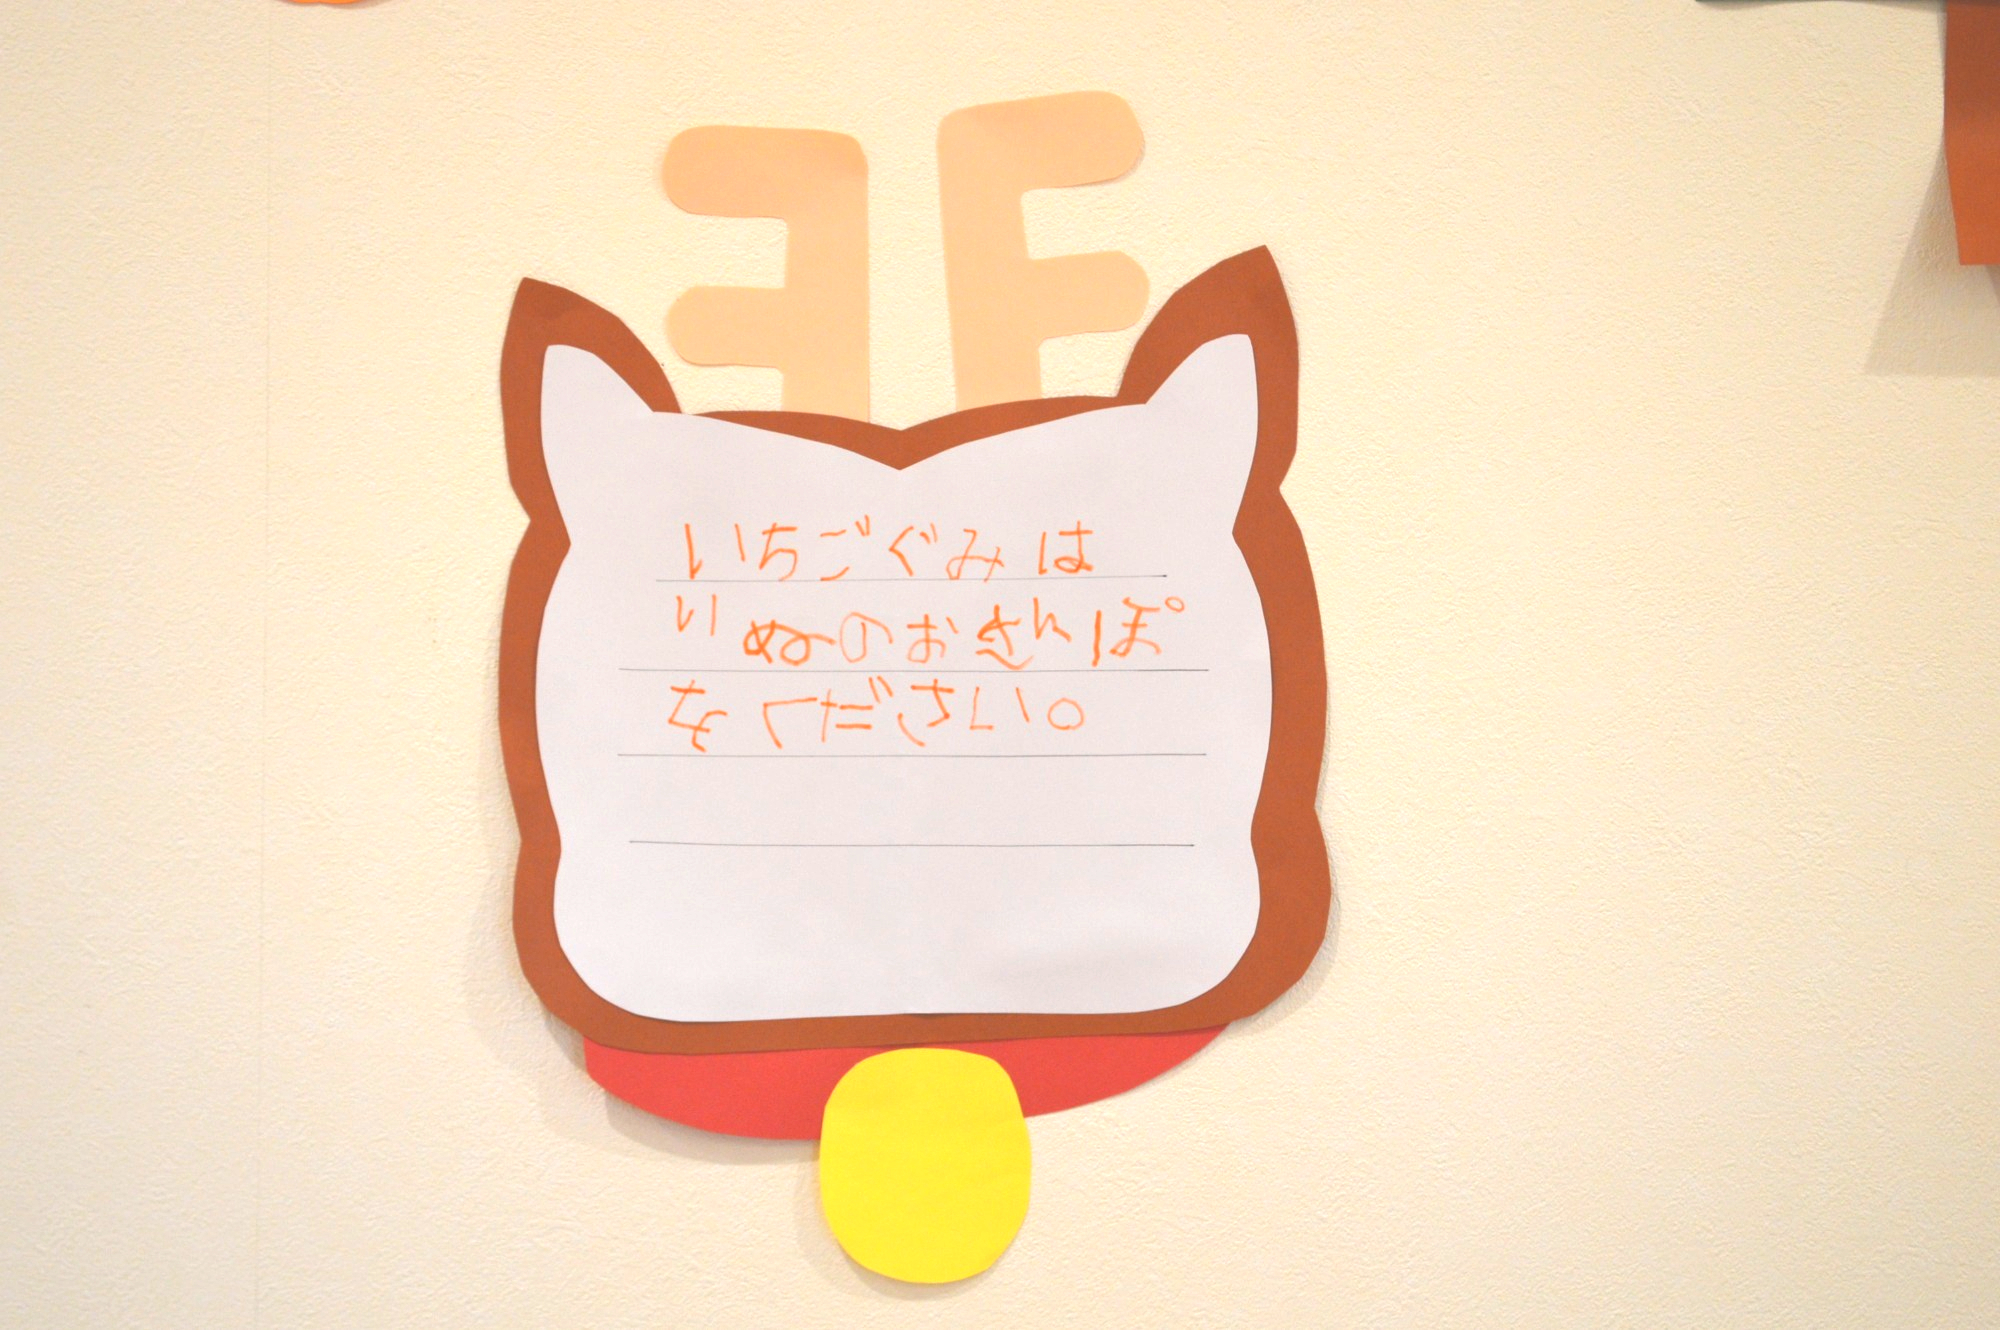 いちごぐみは
いぬのおさんぽ
をください。